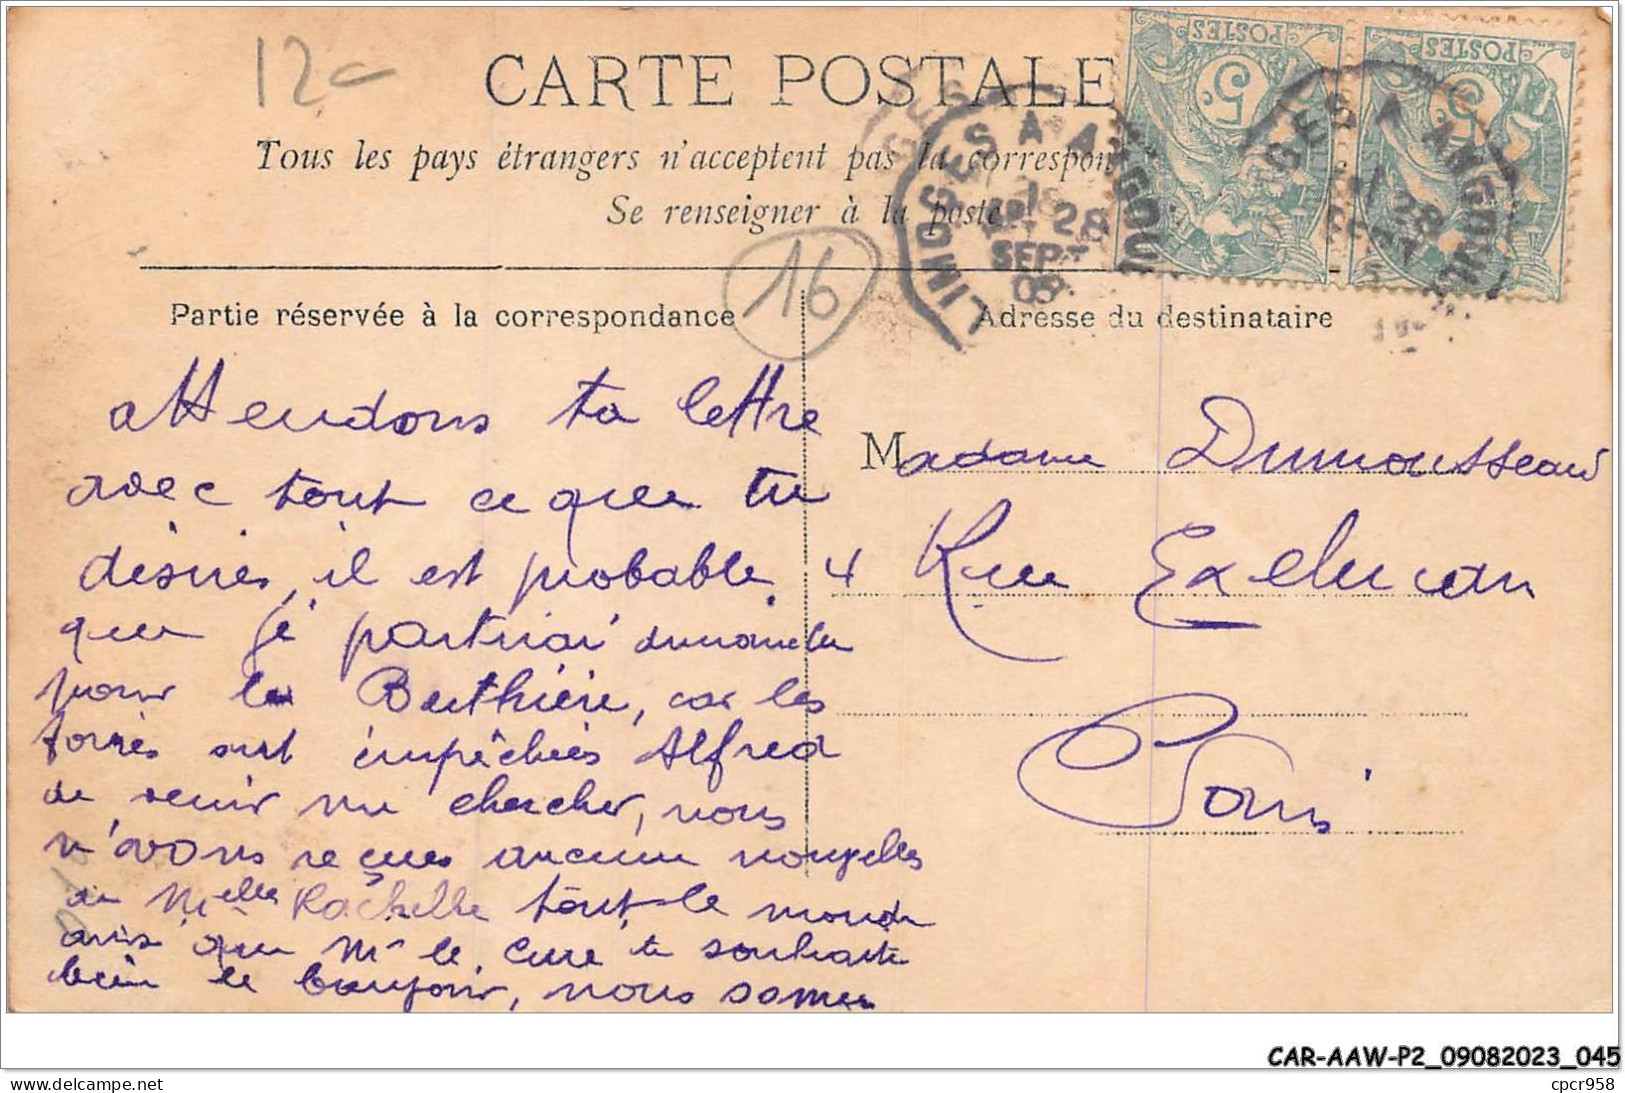 12
CARTE POSTALE
Tous les pays étrangers n'acceptent pas la correspon
Se renseigner à la poste
POSTES
5c
POSTES
LIMOGES A ANGOU
28
SEPT
05
16
Partie réservée à la correspondance
Adresse du destinataire
attendons ta lettre
avec tout ce que tu
désires, il est probable
que je partirai
pour la Berthière, car les
sont empêchées Alfred
de venir me chercher, nous
n'avons reçues aucune nouvelles
de Melle Rachelle tout le monde
ainsi que Mr le Curé te souhaite
bien le bonjour, nous sommes
Madame Dumousseau
4 Rue Exelmean
Paris
CAR-AAW-P2_09082023_045
www.delcampe.net
cpcr958